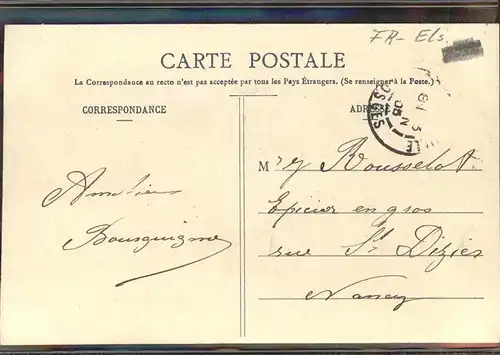 FR- Els.
CARTE POSTALE
La Correspondance au recto n'est pas acceptée par tous les Pays Étrangers. (Se renseigner à la Poste.)
CORRESPONDANCE
ADRESSE
VOSGES
05
M'r J Rousselot.
Epicier en gros
rue St Dizier
Nancy
Amitiés